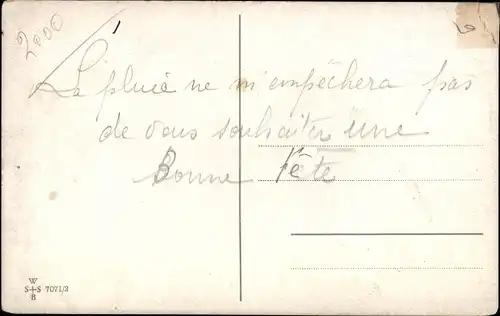 2000
La pluie ne m'empêchera pas
de vous souhaiter une
Bonne Fête
W
S+S 7071/2
B